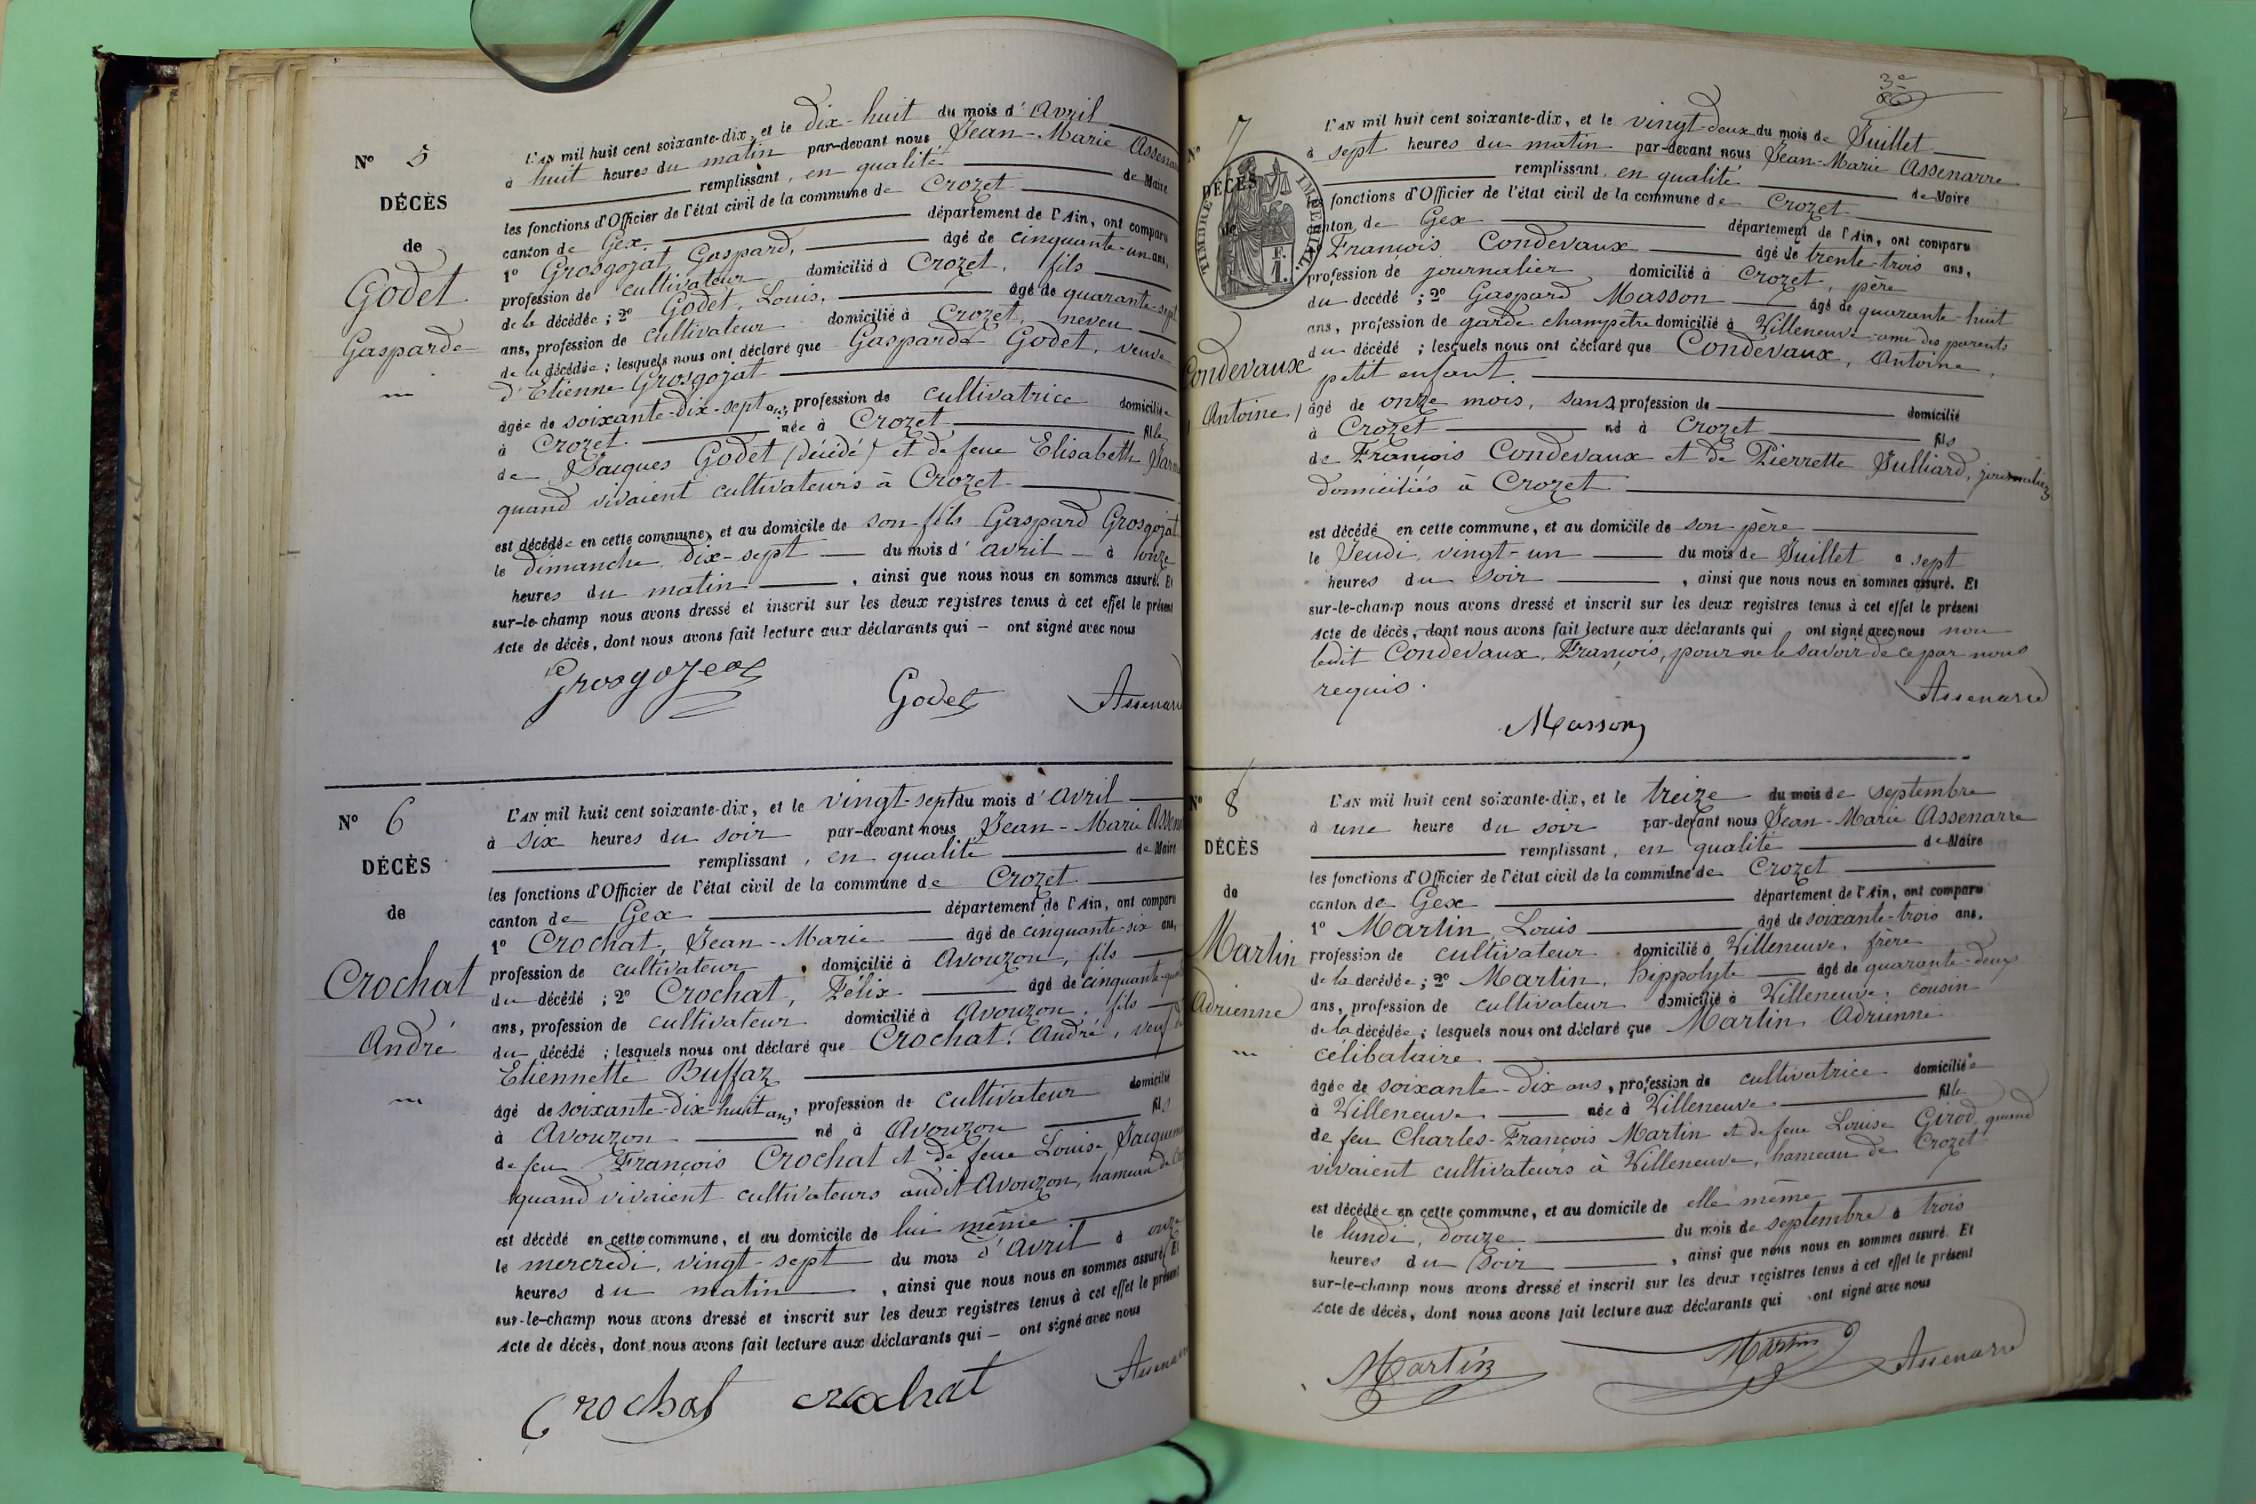 N° 5
DÉCÈS
de
Godet
Gasparde
L'AN mil huit cent soixante-dix, et le dix-huit du mois d'Avril
à huit heures du matin par-devant nous Jean-Marie
remplissant, en qualité de Maire
les fonctions d'Officier de l'état civil de la commune de Crozet
canton de Gex département de l'Ain, ont comparu
1° Grosgojat, Gaspard, âgé de cinquante-un ans,
profession de cultivateur domicilié à Crozet, fils
de la décédée ; 2° Godet, Louis, âgé de quarante-sept
ans, profession de cultivateur domicilié à Crozet, neveu
de la décédée ; lesquels nous ont déclaré que Gasparde Godet, veuve
d'Etienne Grosgojat
âgée de soixante-dix-sept ans, profession de cultivatrice domiciliée
à Crozet née à Crozet fille
de Jacques Godet (décédé) et de feue Elisabeth
quand vivaient cultivateurs à Crozet
est décédée en cette commune, et au domicile de son fils Gaspard Grosgojat
le dimanche, dix-sept du mois d'avril à onze
heures du matin, ainsi que nous nous en sommes assuré. Et
sur-le-champ nous avons dressé et inscrit sur les deux registres tenus à cet effet le présent
Acte de décès, dont nous avons fait lecture aux déclarants qui — ont signé avec nous
Grosgojeat Godet
N° 6
DÉCÈS
de
Crochat
André
L'AN mil huit cent soixante-dix, et le vingt-sept du mois d'avril
à six heures du soir par-devant nous Jean-Marie
remplissant, en qualité de Maire
les fonctions d'Officier de l'état civil de la commune de Crozet
canton de Gex département de l'Ain, ont comparu
1° Crochat, Jean-Marie âgé de cinquante-six ans,
profession de cultivateur domicilié à Avouzon, fils
du décédé ; 2° Crochat, Félix âgé de cinquante
ans, profession de cultivateur domicilié à Avouzon, fils
du décédé ; lesquels nous ont déclaré que Crochat, André, veuf
Etiennette Buffaz
âgé de soixante-dix-huit ans, profession de cultivateur domicilié
à Avouzon né à Avouzon fils
de feu François Crochat et de feue Louise
quand vivaient cultivateurs audit Avouzon, hameau de
est décédé en cette commune, et au domicile de lui même
le mercredi, vingt-sept du mois d'Avril à onze
heures du matin, ainsi que nous nous en sommes assuré. Et
sur-le-champ nous avons dressé et inscrit sur les deux registres tenus à cet effet le présent
Acte de décès, dont nous avons fait lecture aux déclarants qui — ont signé avec nous
Crochat crochat
3e
N° 7
TIMBRE IMPÉRIAL.
F. 1.
DÉCÈS
de
Condevaux
Antoine
L'AN mil huit cent soixante-dix, et le vingt-deux du mois de Juillet
à sept heures du matin par-devant nous Jean-Marie Assenarre
remplissant, en qualité de Maire
fonctions d'Officier de l'état civil de la commune de Crozet
canton de Gex département de l'Ain, ont comparu
François Condevaux âgé de trente-trois ans,
profession de journalier domicilié à Crozet, père
du décédé ; 2° Gaspard Masson âgé de quarante-huit
ans, profession de garde champêtre domicilié à Villeneuve ami des parents
du décédé ; lesquels nous ont déclaré que Condevaux, Antoine,
petit enfant.
âgé de onze mois, sans profession de domicilié
à Crozet né à Crozet fils
de François Condevaux et de Pierrette Julliard, journaliers
domiciliés à Crozet
est décédé en cette commune, et au domicile de son père
le Jeudi, vingt-un du mois de Juillet à sept
heures du soir, ainsi que nous nous en sommes assuré. Et
sur-le-champ nous avons dressé et inscrit sur les deux registres tenus à cet effet le présent
Acte de décès, dont nous avons fait lecture aux déclarants qui ont signé avec nous non
ledit Condevaux, François, pour ne le savoir de ce par nous
requis. Assenarre
Masson
N° 8
DÉCÈS
de
Martin
Adrienne
L'AN mil huit cent soixante-dix, et le treize du mois de septembre
à une heure du soir par-devant nous Jean-Marie Assenarre
remplissant, en qualité de Maire
les fonctions d'Officier de l'état civil de la commune de Crozet
canton de Gex département de l'Ain, ont comparu
1° Martin, Louis âgé de soixante-trois ans,
profession de cultivateur domicilié à Villeneuve, frère
de la décédée ; 2° Martin, hippolyte âgé de quarante-deux
ans, profession de cultivateur domicilié à Villeneuve, cousin
de la décédée ; lesquels nous ont déclaré que Martin Adrienne
célibataire.
âgée de soixante-dix ans, profession de cultivatrice domiciliée
à Villeneuve née à Villeneuve fille
de feu Charles-François Martin et de feue Louise Girod, quand
vivaient cultivateurs à Villeneuve, hameau de Crozet
est décédée en cette commune, et au domicile de elle même
le lundi, douze du mois de septembre à trois
heures du soir, ainsi que nous nous en sommes assuré. Et
sur-le-champ nous avons dressé et inscrit sur les deux registres tenus à cet effet le présent
Acte de décès, dont nous avons fait lecture aux déclarants qui ont signé avec nous
Martin Martin Assenarre